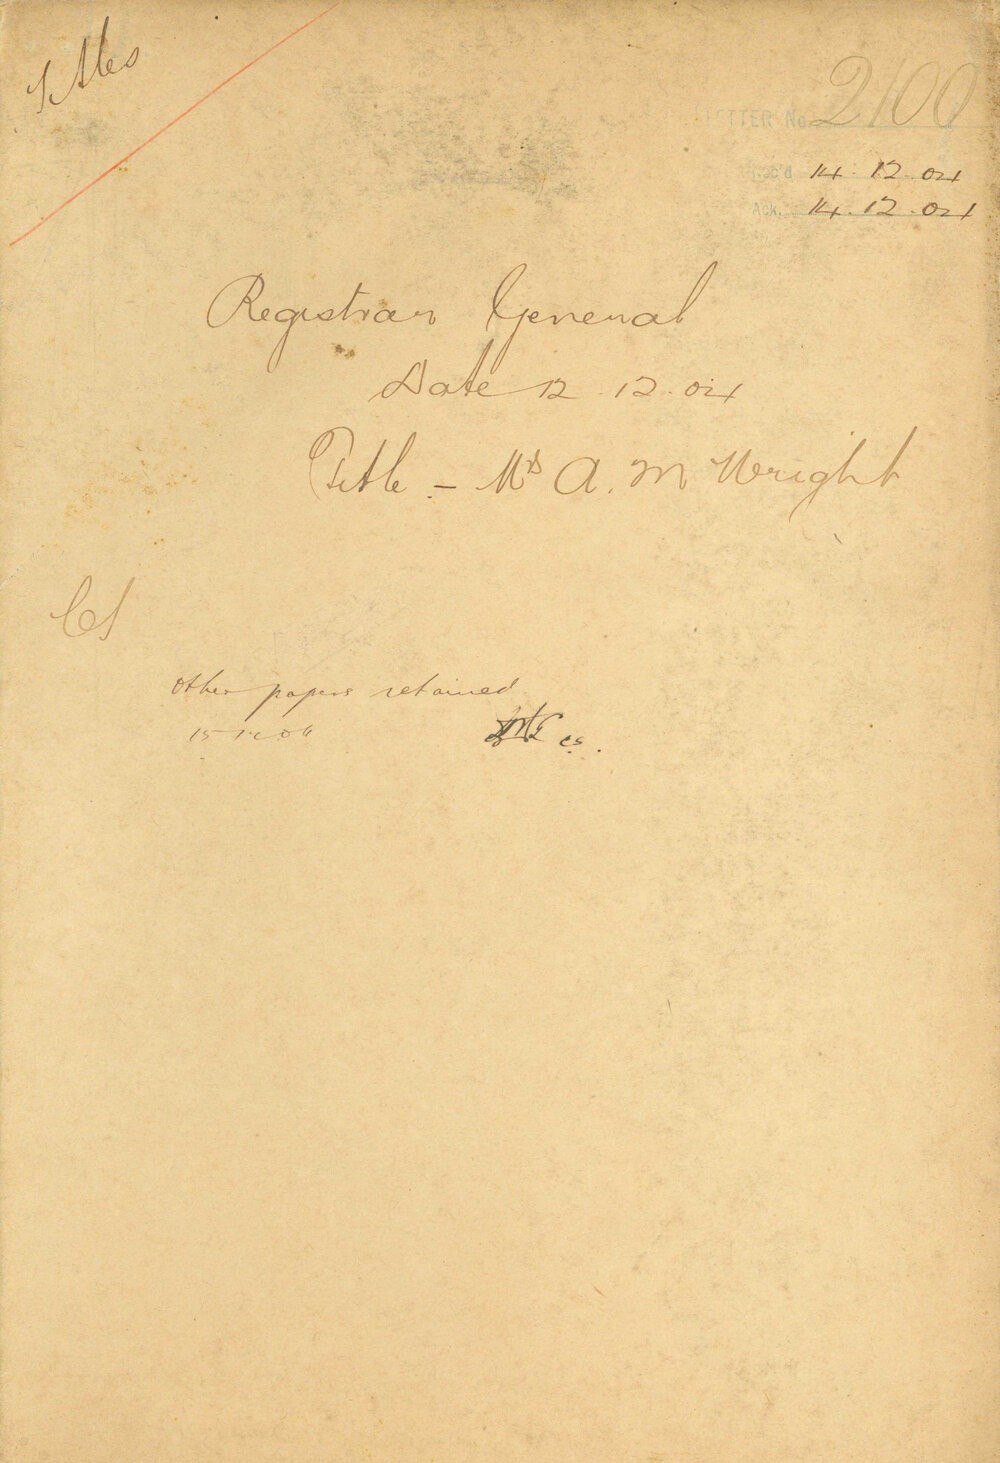 Titles
LETTER No 2100
Rec'd 14.12.04
Ack. 14.12.04
Registrar General
Date 12.12.04
Title - Mrs A. M Wright
CS
Other papers retained
15 12 04
CS.